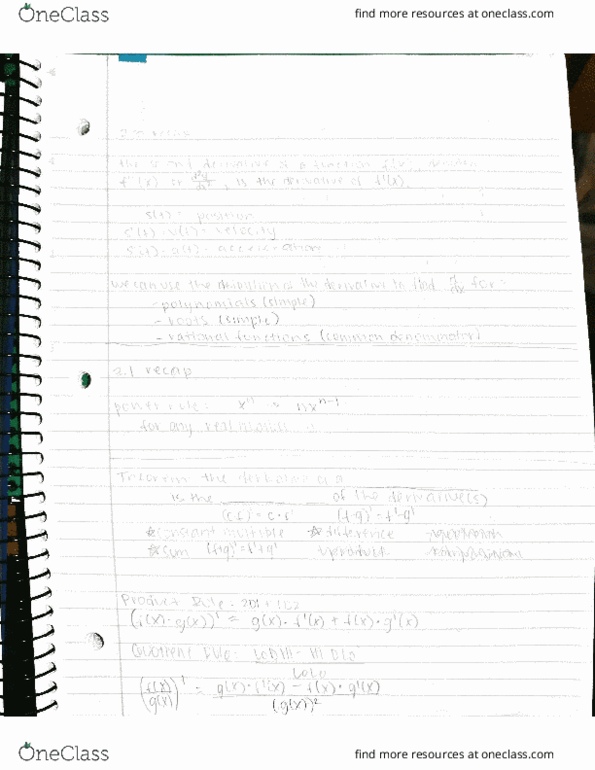 OneClass
find more resources at oneclass.com
2.7 recap
the second derivative of a function f(x), denoted
f''(x) or d²y/dx², is the derivative of f'(x).
s(t) = position
s'(t) = v(t) = velocity
s''(t) = a(t) = acceleration
we can use the definition of the derivative to find d/dx for:
- polynomials (simple)
- roots (simple)
- rational functions (common denominator)
3.1 recap
power rule: xⁿ = nxⁿ⁻¹
for any real number n
Theorem the derivative of a
is the of the derivative(s)
(c·f)' = c·f' (f-g)' = f'-g'
constant multiple difference quotient
sum (f+g)' = f'+g' product
Product Rule:
(f(x)·g(x))' = g(x)·f'(x) + f(x)·g'(x)
Quotient Rule: LoDHi - HiDLo
LoLo
(f(x)/g(x))' = g(x)·f'(x) - f(x)·g'(x)
(g(x))²
OneClass
find more resources at oneclass.com